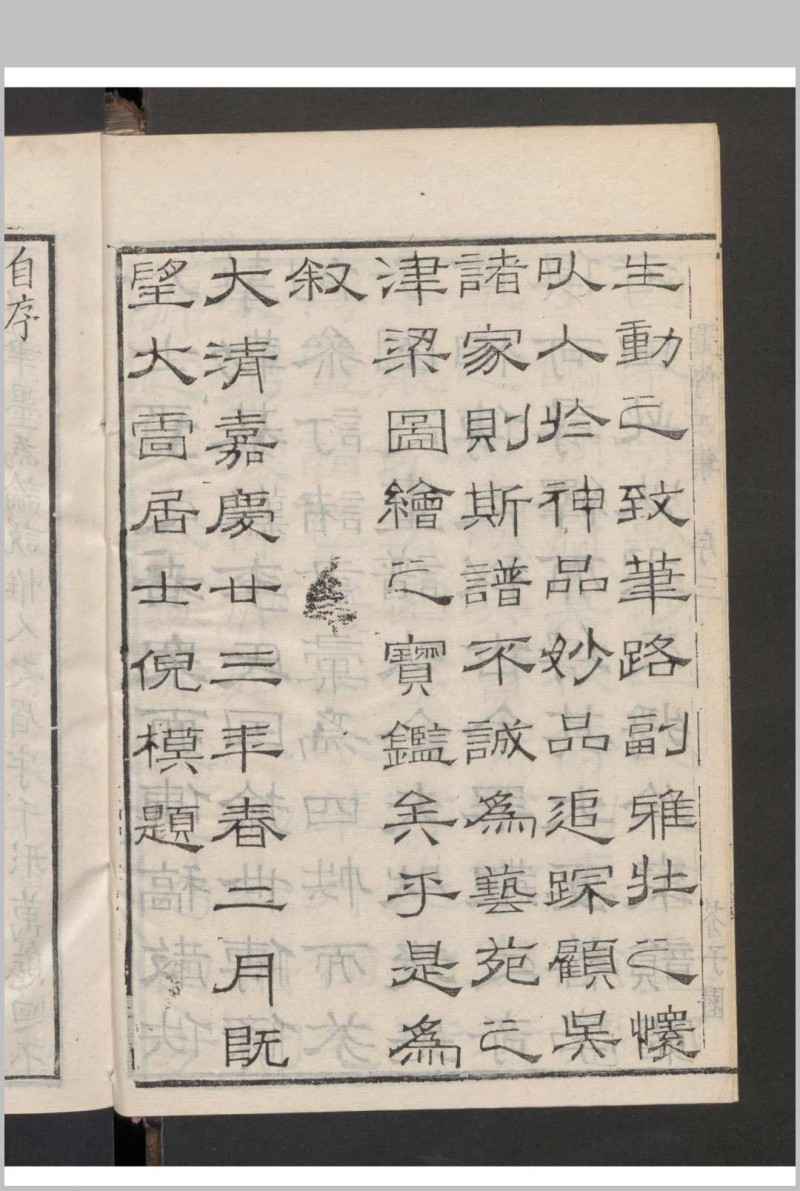 生動之致筆路副雅壯之懷
㕥人於神品妙品追踪顧吳
諸家則斯譜不誠為藝苑之
津梁圖繪之寶鑑矣乎是為
叙
大清嘉慶廿三年春二月既
望大雷居士倪模題
自序